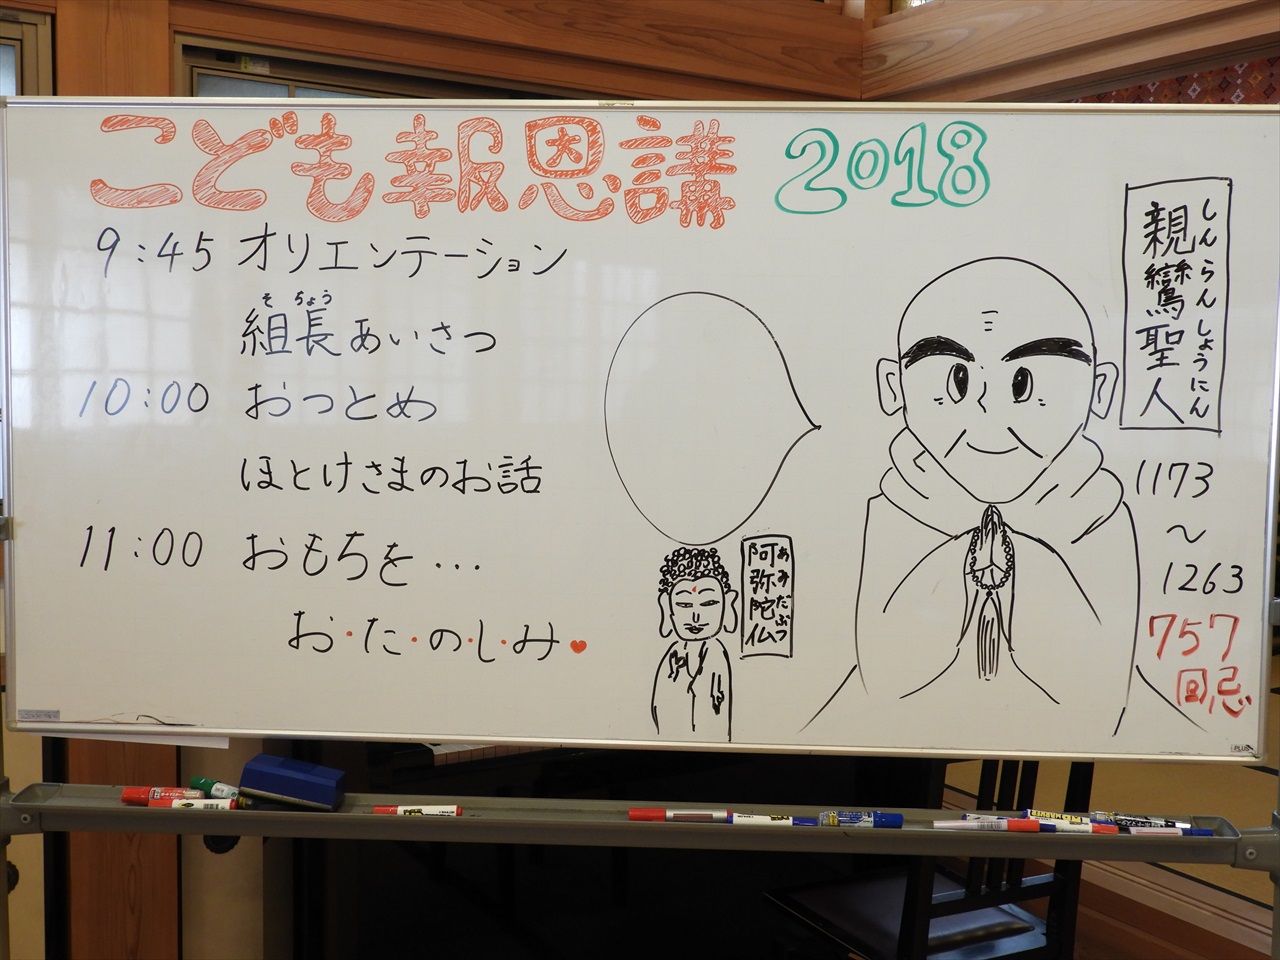 こども報恩講 2018
9:45 オリエンテーション
そ ちょう
組長あいさつ
10:00 おつとめ
ほとけさまのお話
11:00 おもちを…
お・た・の・し・み♥
親鸞聖人
しんらんしょうにん
1173
～
1263
757
回忌
阿弥陀仏
あみだぶつ
PLUS